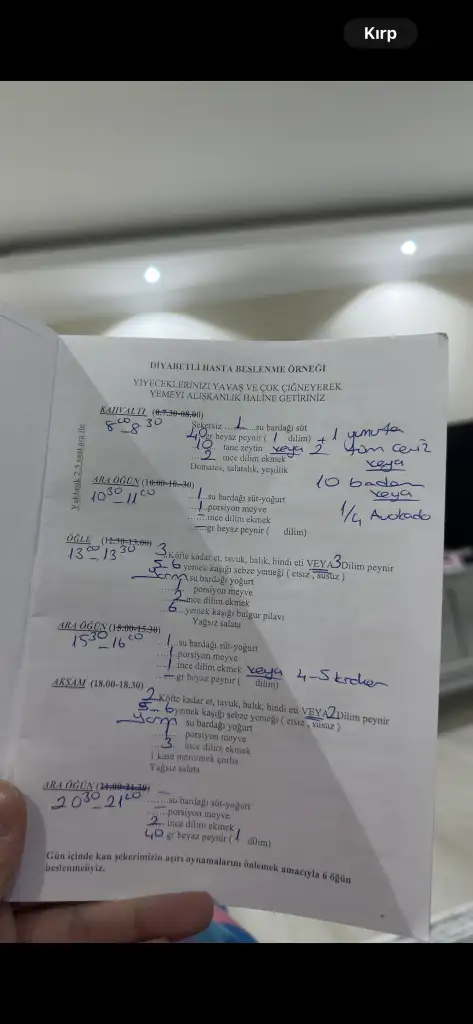 Kırp
DİYABETLİ HASTA BESLENME ÖRNEĞİ
YİYECEKLERİNİZİ YAVAŞ VE ÇOK ÇİĞNEYEREK
YEMEYİ ALIŞKANLIK HALİNE GETİRİNİZ
KAHVALTI (0.7.30-08.00)
8⁰⁰-8³⁰
Şekersiz ...1... su bardağı süt
40 gr beyaz peynir ( 1 dilim) + 1 yumurta
10 tane zeytin veya 2 tüm ceviz
2 ince dilim ekmek veya
Domates, salatalık, yeşillik
10 badem
veya
1/4 Avokado
Yaklaşık 2.5 saat ara ile
ARA ÖĞÜN (10.00-10.-30)
10³⁰-11⁰⁰
1 su bardağı süt-yoğurt
1 porsiyon meyve
— ince dilim ekmek
— gr beyaz peynir ( dilim)
ÖĞLE (12.30-13.00)
13⁰⁰-13³⁰
3 Köfte kadar et, tavuk, balık, hindi eti VEYA 3 Dilim peynir
5-6 yemek kaşığı sebze yemeği ( etsiz , susuz )
yarım su bardağı yoğurt
porsiyon meyve
2 ince dilim ekmek
6 yemek kaşığı bulgur pilavı
Yağsız salata
ARA ÖĞÜN (15.00-15.30)
15³⁰-16⁰⁰
1 su bardağı süt-yoğurt
1 porsiyon meyve
1 ince dilim ekmek veya 4-5 kraker
— gr beyaz peynir ( dilim)
AKŞAM (18.00-18.30)
2 Köfte kadar et, tavuk, balık, hindi eti VEYA 2 Dilim peynir
5-6 yemek kaşığı sebze yemeği ( etsiz , susuz )
yarım su bardağı yoğurt
— porsiyon meyve
3 ince dilim ekmek
1 kase mercimek çorba
Yağsız salata
ARA ÖĞÜN (21.00-21.30)
20³⁰-21⁰⁰
— su bardağı süt-yoğurt
— porsiyon meyve
2 ince dilim ekmek
40 gr beyaz peynir ( 1 dilim)
Gün içinde kan şekerimizin aşırı oynamalarını önlemek amacıyla 6 öğün
beslenmeliyiz.